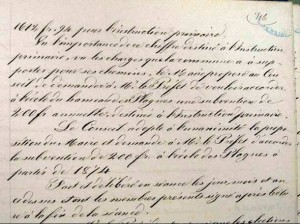 1612 fr. 94 pour l'instruction primaire.
Vu l'importance de ce chiffre destiné à l'instruction
primaire, vu les charges que la commune a à sup
porter pour ses chemins, le Maire propose au Con
seil de demander à Mr le Préfet de vouloir accorder
à l'école du hameau des Plagnes une subvention de
200 fr annuelle, destinée à l'instruction primaire.
Le Conseil adopte à l'unanimité la propo
sition du Maire et demande à Mr le Préfet d'accorder
la subvention de 200 fr. à l'école des Plagnes à
partir de 1874
Fait et délibéré en séance les jour, mois et an
et les membres présents signé après lectu
re à la fin de la séance